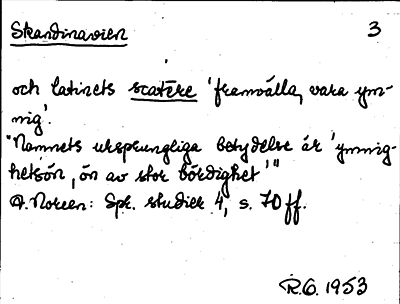 Skandinavien 3
och latinets scatēre 'framvälla, vara ym-
nig'.
"Namnets ursprungliga betydelse är 'ymnig-
hetsön, ön av stor bördighet'"
A. Noreen: Spr. studier 4, s. 70 ff.
R.G. 1953